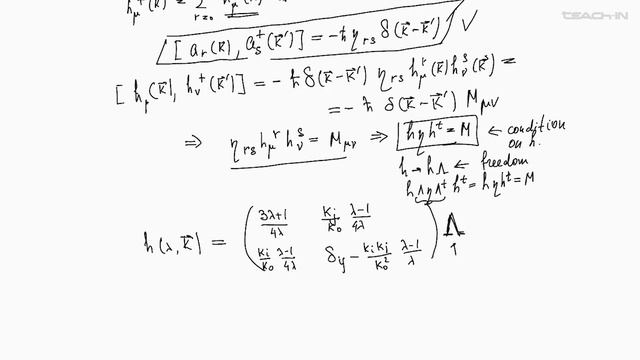 TEACH-IN
[a_r(k⃗), a_s^+(k⃗')] = -ħ η_rs δ(k⃗-k⃗') √
[h_μ(k⃗), h_ν^+(k⃗')] = -ħ δ(k⃗-k⃗') η_rs h_μ^r(k⃗) h_ν^s(k⃗) =
= -ħ δ(k⃗-k⃗') M_μν
⇒ η_rs h_μ^r h_ν^s = M_μν ⇒ hηh^t = M ← condition
on h.
h → hΛ ← freedom
hΛηΛ^t h^t = hηh^t = M
h(λ, k⃗) = ( (3λ+1)/(4λ)  (k_j/k_0) (λ-1)/(4λ)
(k_i/k_0) (λ-1)/(4λ)  δ_ij - (k_i k_j/k_0^2) (λ-1)/λ ) Λ
↑